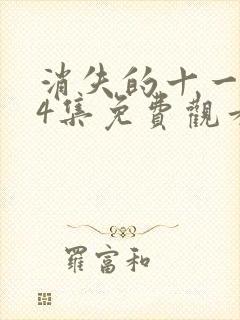 消失的十一
4集免費觀
羅富和